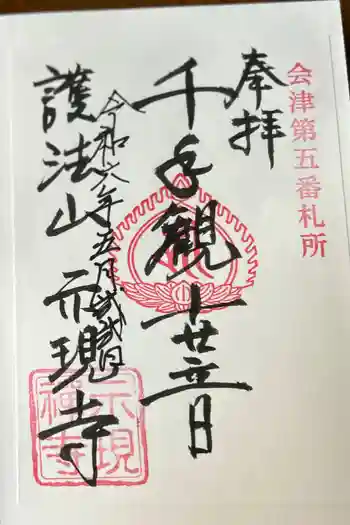 会津第五番札所
奉拝
千手観世音
令和六年五月
護法山 示現寺
示現
寺